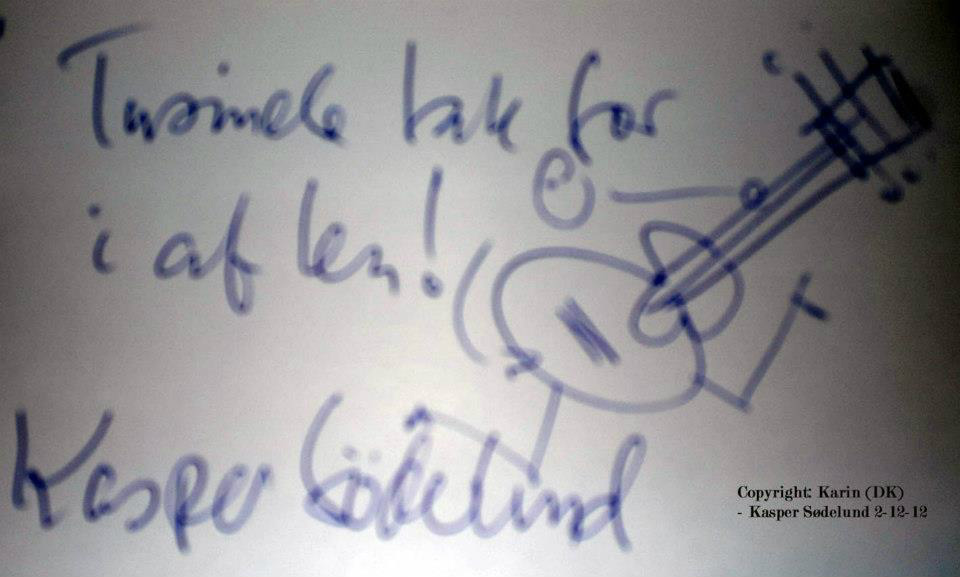 Tusinde tak for
i aften!
Kasper Södelund
Copyright: Karin (DK)
- Kasper Sødelund 2-12-12